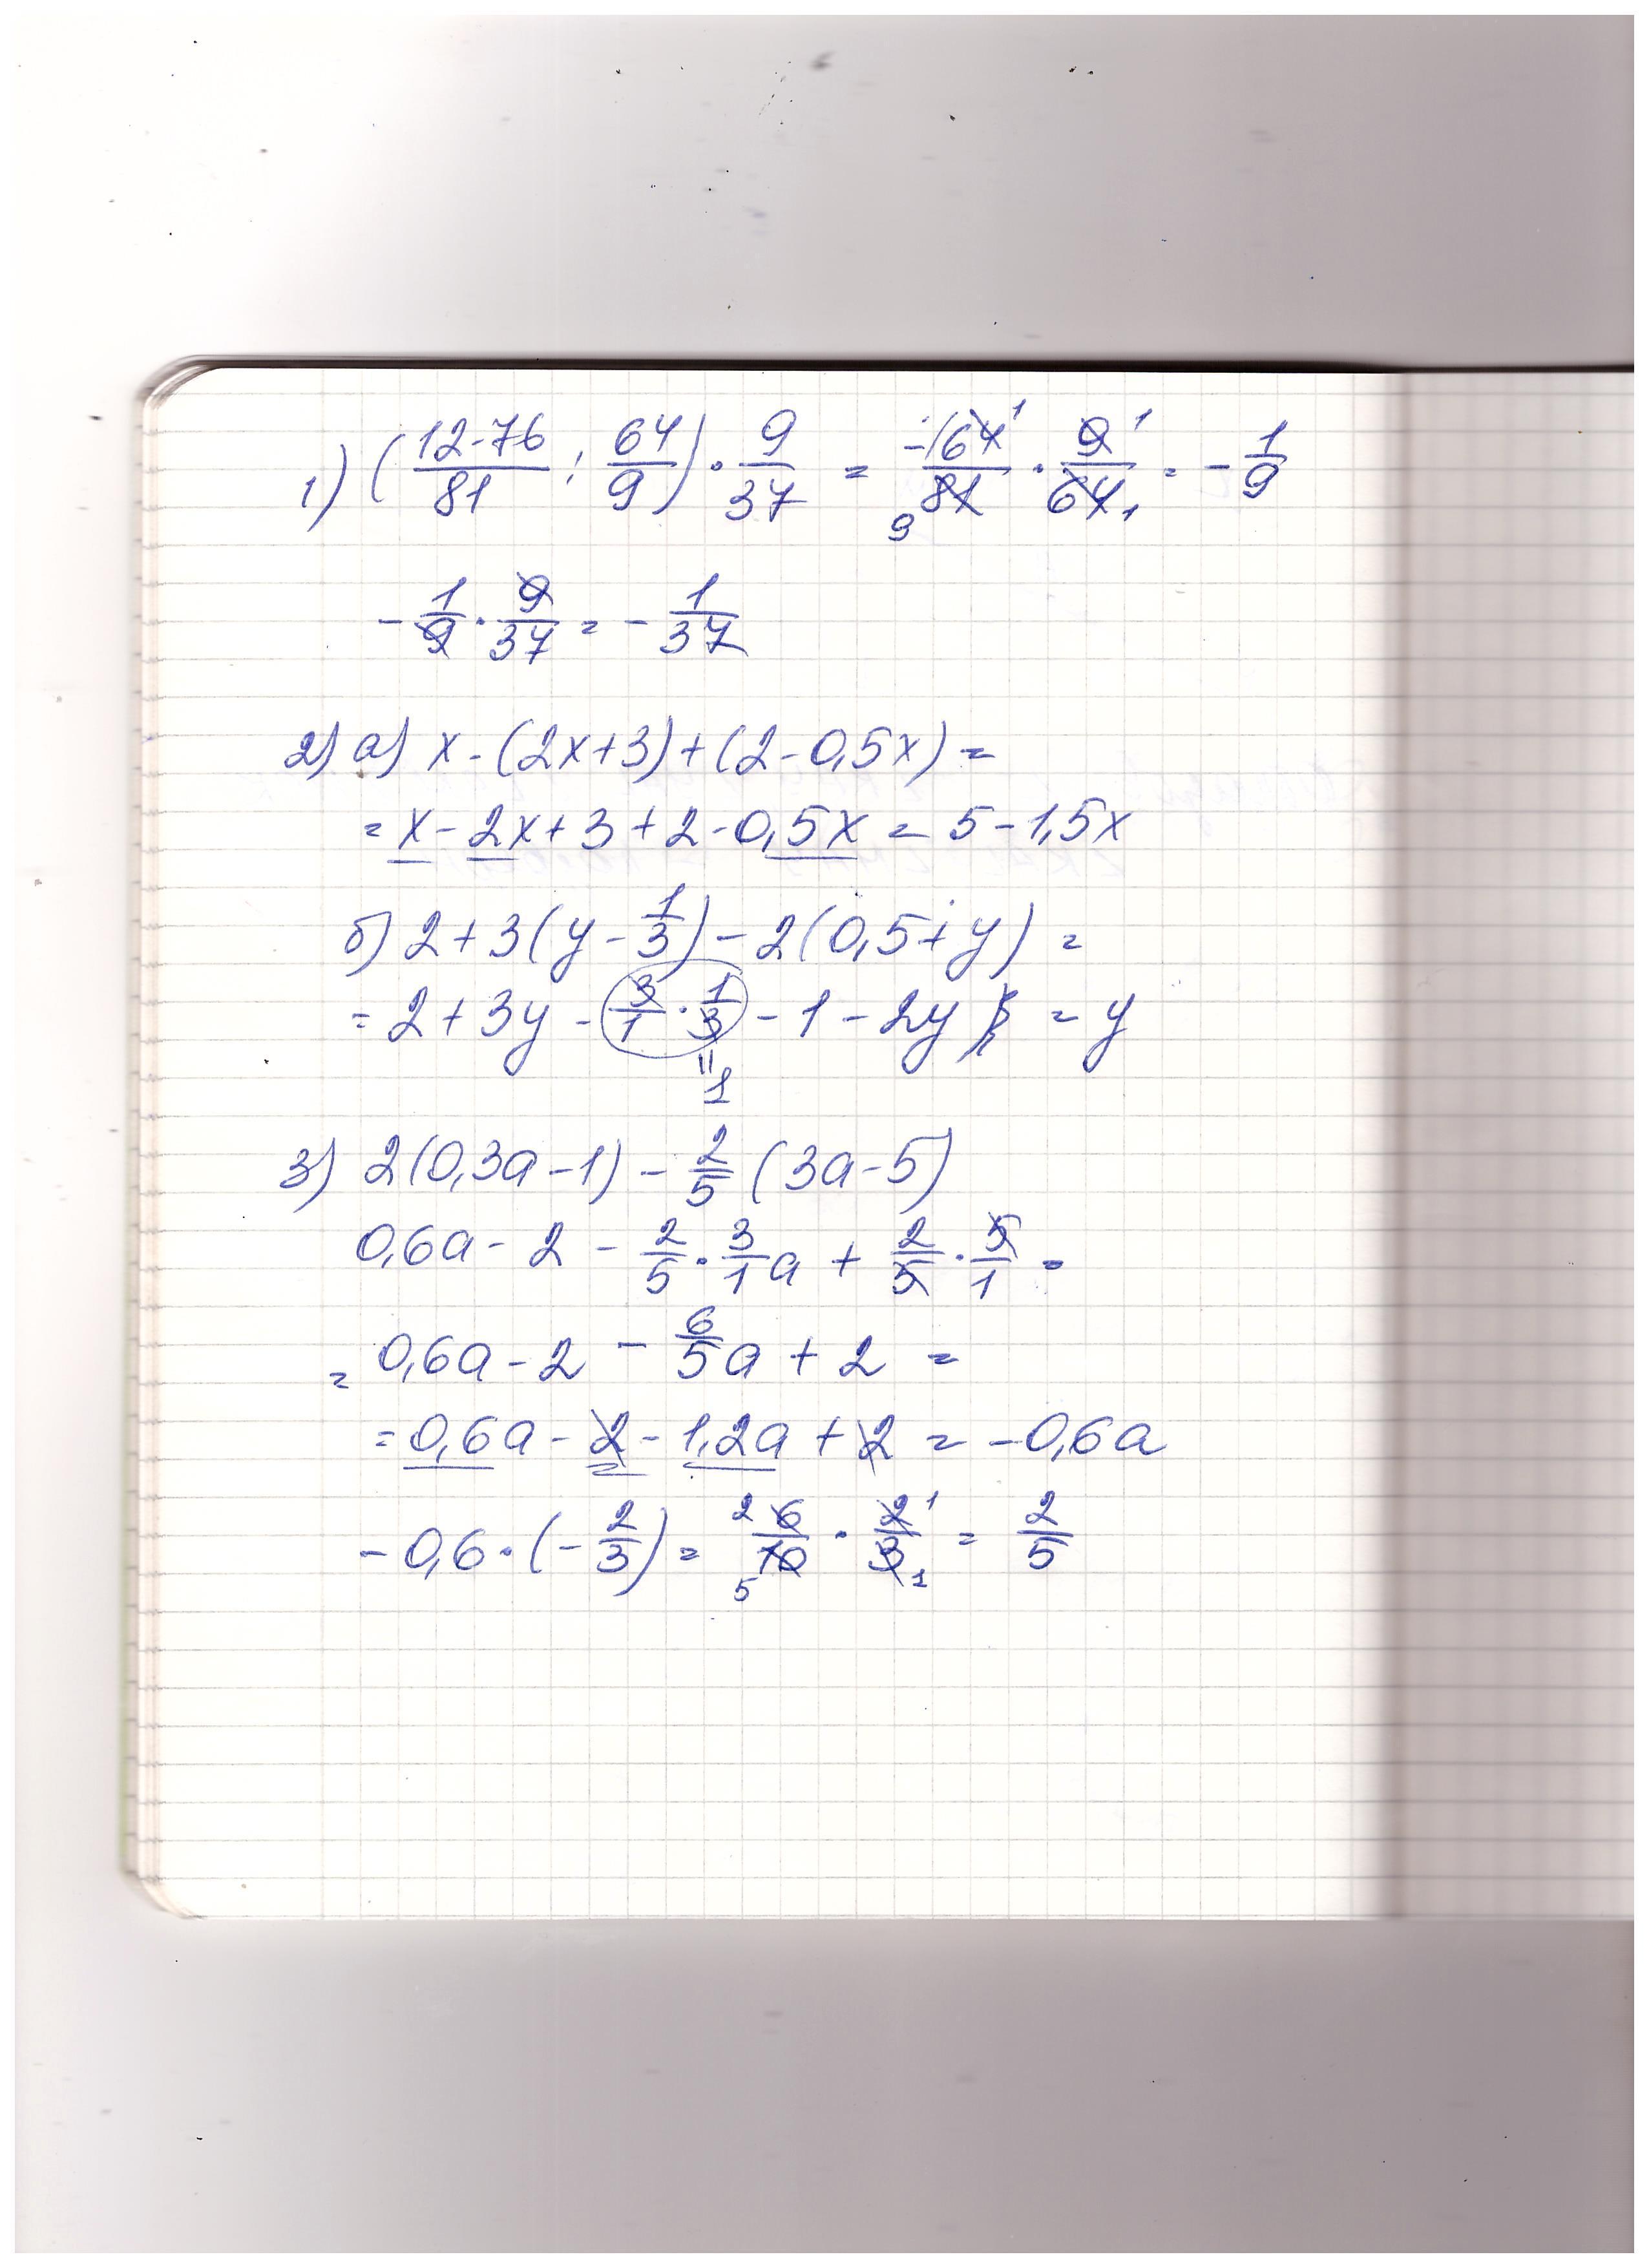 1) (12-76/81 : 64/9) · 9/37 = -64/81 · 9/64 = -1/9
-1/9 · 9/37 = -1/37
2) а) x - (2x+3) + (2-0,5x) =
= x - 2x + 3 + 2 - 0,5x = 5 - 1,5x
б) 2 + 3(y - 1/3) - 2(0,5 + y) =
= 2 + 3y - 3/1 · 1/3 - 1 - 2y = y
"1
3) 2(0,3a - 1) - 2/5 (3a - 5)
0,6a - 2 - 2/5 · 3/1 a + 2/5 · 5/1 =
= 0,6a - 2 - 6/5 a + 2 =
= 0,6a - 2 - 1,2a + 2 = -0,6a
-0,6 · (-2/3) = 6/10 · 2/3 = 2/5